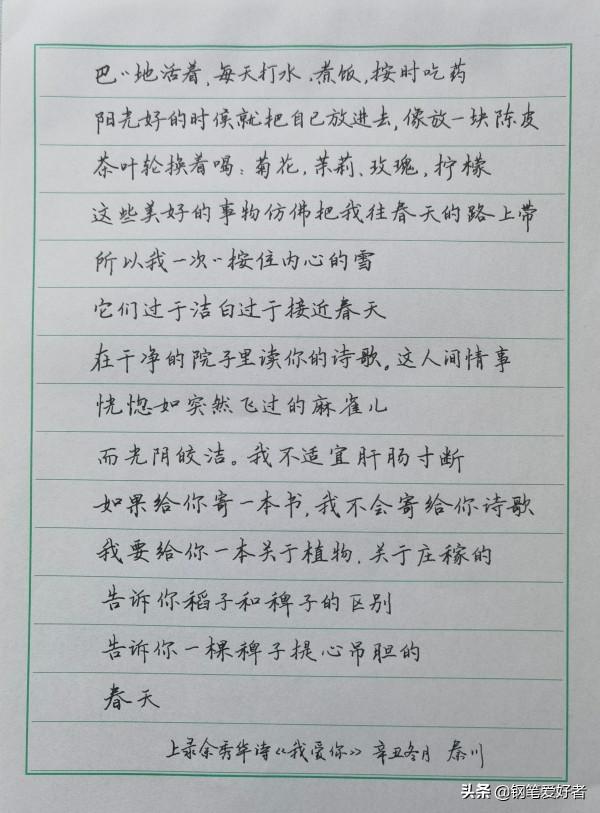 巴〃地活着,每天打水、煮饭,按时吃药
阳光好的时候就把自己放进去,像放一块陈皮
茶叶轮换着喝:菊花,茉莉、玫瑰,柠檬
这些美好的事物仿佛把我往春天的路上带
所以我一次〃按住内心的雪
它们过于洁白过于接近春天
在干净的院子里读你的诗歌。这人间情事
恍惚如突然飞过的麻雀儿
而光阴皎洁。我不适宜肝肠寸断
如果给你寄一本书,我不会寄给你诗歌
我要给你一本关于植物,关于庄稼的
告诉你稻子和稗子的区别
告诉你一棵稗子提心吊胆的
春天
上录余秀华诗《我爱你》辛丑冬月 秦川
头条@钢笔爱好者